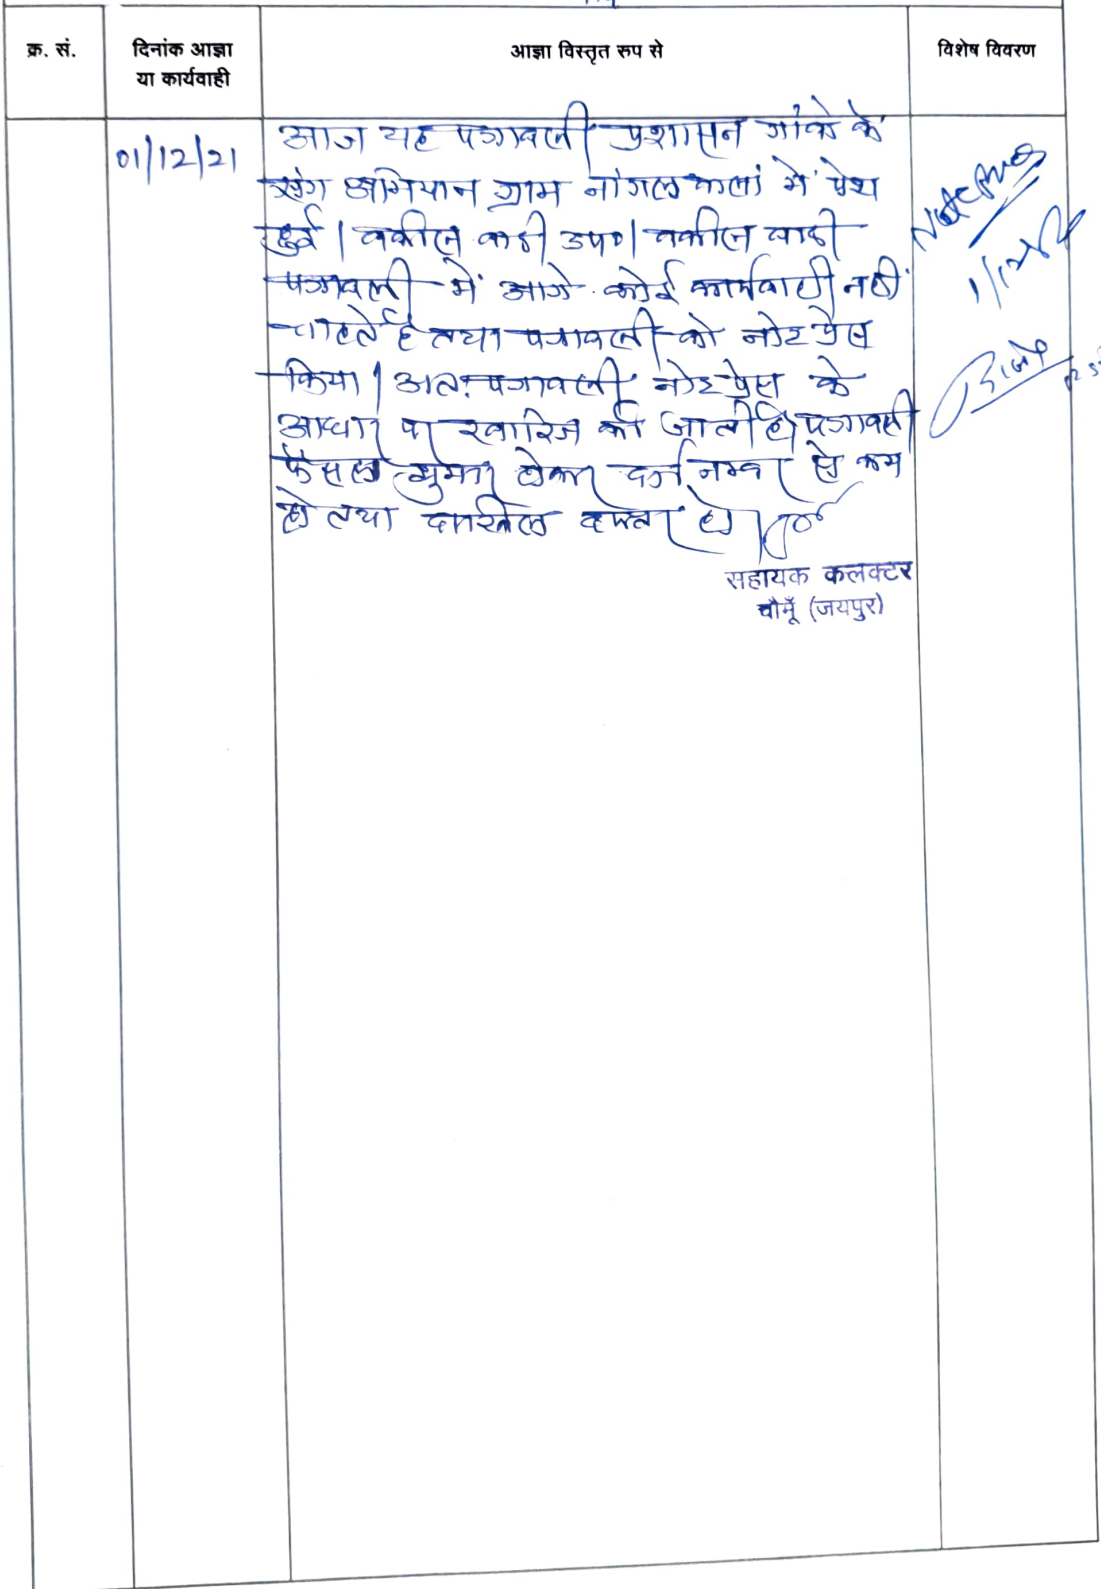 क्र. सं. दिनांक आज्ञा या कार्यवाही आज्ञा विस्तृत रुप से विशेष विवरण
01/12/21
आज यह पत्रावली प्रशासन गांवो के
संग अभियान ग्राम नांगल कलां में पेश
हुई। वकील वादी उप०। वकील वादी
पत्रावली में आगे कोई कार्यवाही नही
चाहते है तथा पत्रावली को नोट प्रेस
किया। अतः पत्रावली नोट प्रेस के
आधार पर खारिज की जाती है। पत्रावली
फैसल शुमार होकर दर्ज नम्बर से कम
हो तथा दाखिल दफ्तर हो।
सहायक कलक्टर
चौमूँ (जयपुर)
Not press